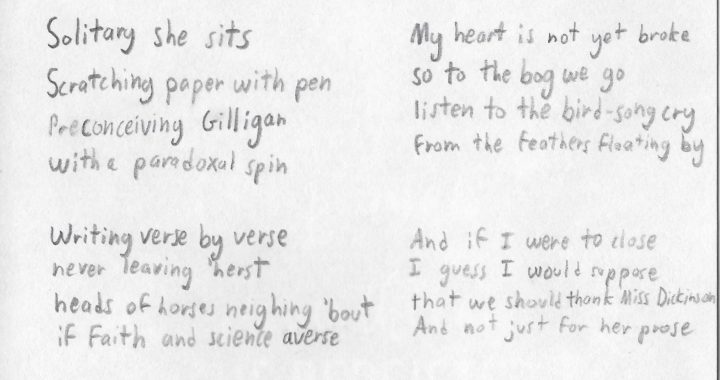 Solitary she sits
Scratching paper with pen
Preconceiving Gilligan
with a paradoxal spin
Writing verse by verse
never leaving 'herst
heads of horses neighing 'bout
if Faith and science averse
My heart is not yet broke
so to the bog we go
listen to the bird-song cry
From the feathers floating by
And if I were to close
I guess I would suppose
that we should thank Miss Dickinson
And not just for her prose